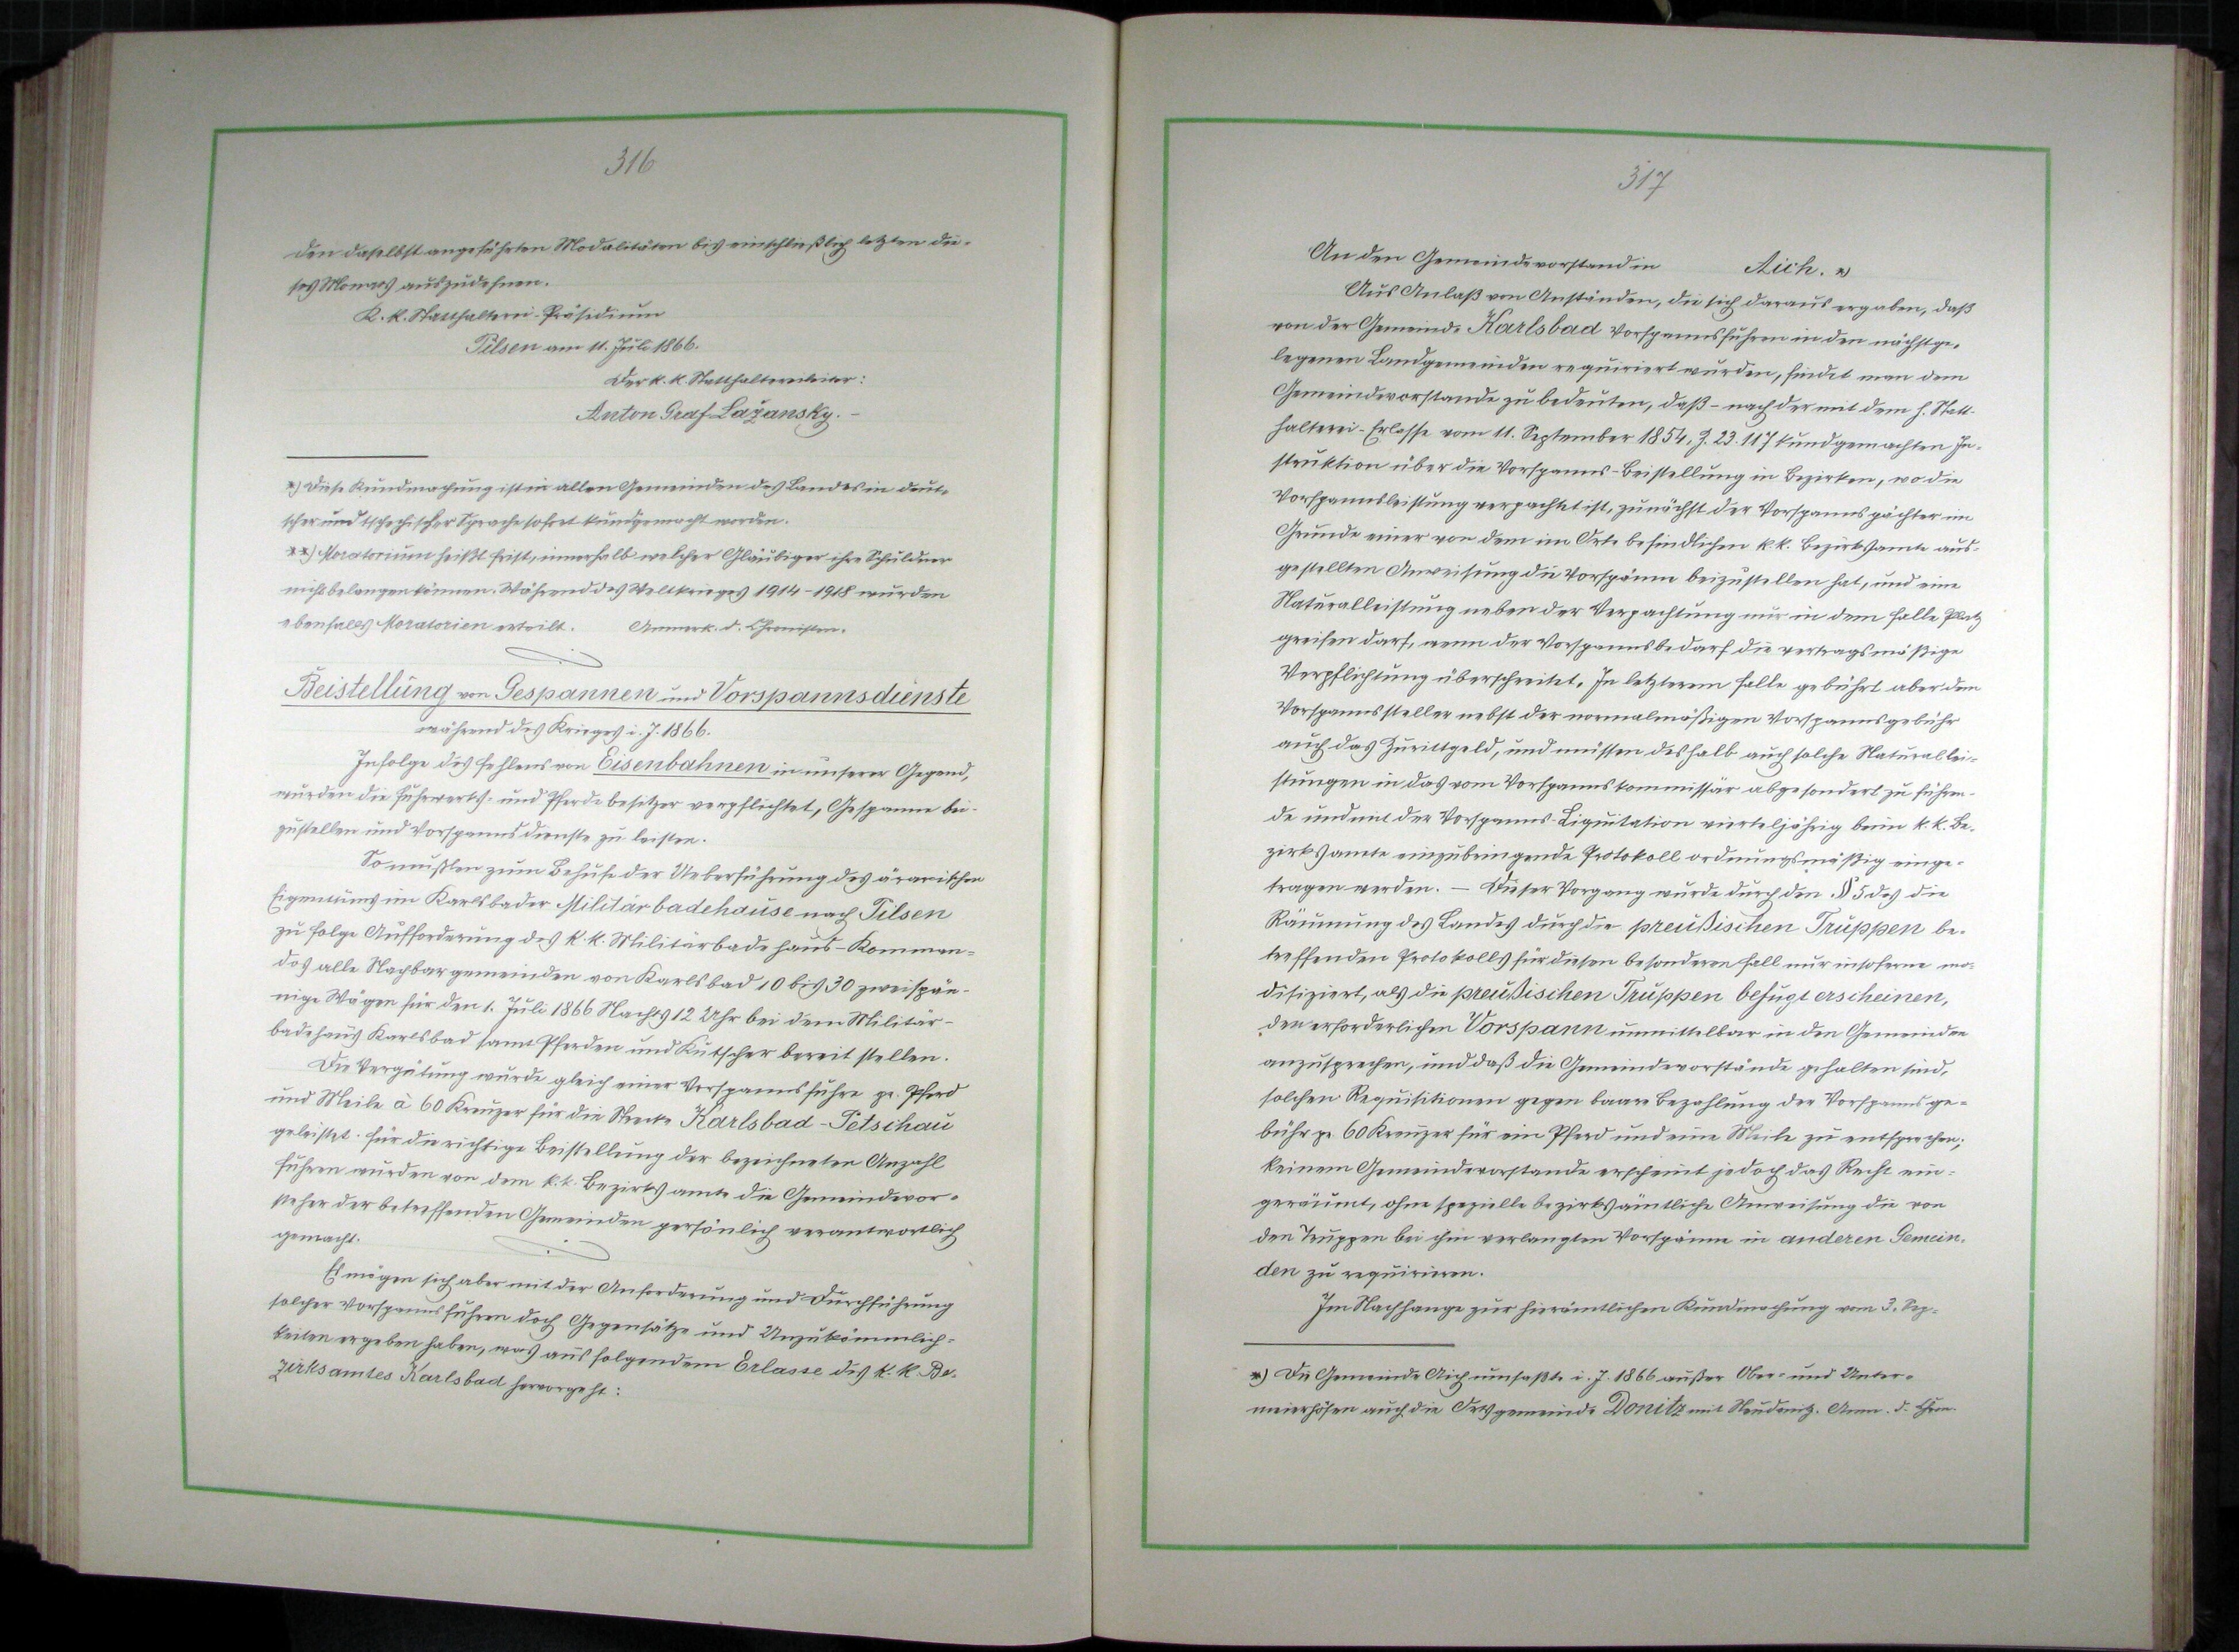 316
den daselbst angeführten Modalitäten bis einschließlich letzten die-
ses Monats auszudehnen.
K. k. Statthalterei-Präsidium
Pilsen am 11. Juli 1866.
Der k. k. Statthaltereileiter:
Anton Graf Lažansky. –
*) Diese Kundmachung ist in allen Gemeinden des Landes in deut-
scher und tschechischer Sprache sofort kundgemacht worden.
**) Moratorium heißt Frist, innerhalb welcher Gläubiger ihre Schuldner
nicht belangen können. Während des Weltkrieges 1914-1918 wurden
ebenfalls Moratorien erteilt. Anmerk. d. Chronisten.
Beistellung von Gespannen und Vorspannsdienste
während des Krieges i. J. 1866.
Infolge des Fehlens von Eisenbahnen in unserer Gegend,
wurden die Fuhrwerks- und Pferdebesitzer verpflichtet, Gespanne bei-
zustellen und Vorspannsdienste zu leisten.
So mußten zum Behufe der Ueberführung des ärarischen
Eigentums im Karlsbader Militärbadehause nach Pilsen
zu folge Aufforderung des k. k. Militärbadehaus-Komman-
dos alle Nachbargemeinden von Karlsbad 10 bis 30 zweispän-
nige Wägen für den 1. Juli 1866 Nachts 12 Uhr bei dem Militär-
badehaus Karlsbad samt Pferden und Kutscher bereit stellen.
Die Vergütung wurde gleich einer Vorspannsfuhre pr. Pferd
und Meile à 60 Kreuzer für die Strecke Karlsbad-Petschau
geleistet. Für die richtige Beistellung der bezeichneten Anzahl
Fuhren wurden von dem k. k. Bezirksamte die Gemeindevor-
steher der betreffenden Gemeinden persönlich verantwortlich
gemacht.
Es mögen sich aber mit der Anforderung und Durchführung
solcher Vorspannsfuhren doch Gegensätze und Unzukömmlich-
keiten ergeben haben, was aus folgendem Erlasse des k. k. Be-
zirksamtes Karlsbad hervorgeht:
317
An den Gemeindevorstand in Aich. *)
Aus Anlaß von Anständen, die sich daraus ergaben, daß
von der Gemeinde Karlsbad Vorspannsfuhren in den nächstge-
legenen Landgemeinden requiriert wurden, findet man dem
Gemeindevorstande zu bedeuten, daß – nach der mit dem h. Statt-
halterei-Erlasse vom 11. September 1854, Z. 23.117 kundgemachten In-
struktion über die Vorspanns-Beistellung in Bezirken, wo die
Vorspannsleistung verpachtet ist, zunächst der Vorspannspächter im
Grunde einer von dem im Orte befindlichen k. k. Bezirksamte aus-
gestellten Anweisung die Vorspänne beizustellen hat, und eine
Naturalleistung neben der Verpachtung nur in dem Falle Platz
greifen darf, wenn der Vorspannsbedarf die vertragsmäßige
Verpflichtung überschreitet. In letzterem Falle gebührt aber dem
Vorspannssteller nebst der normalmäßigen Vorspannsgebühr
auch das Zurittgeld, und müssen deshalb auch solche Naturallei-
stungen in das vom Vorspannskommissär abgesondert zu führen-
de und mit der Vorspanns-Liquitation vierteljährig beim k. k. Be-
zirksamte einzubringende Protokoll ordnungsmäßig einge-
tragen werden. – Dieser Vorgang wurde durch den § 5 des die
Räumung des Landes durch die preußischen Truppen be-
treffenden Protokolls für diesen besonderen Fall nur insoferne mo-
difiziert, als die preußischen Truppen befugt erscheinen,
den erforderlichen Vorspann unmittelbar in den Gemeinden
anzusprechen, und daß die Gemeindevorstände gehalten sind,
solchen Requisitionen gegen baare Bezahlung der Vorspannsge-
bühr pr 60 Kreuzer für ein Pferd und eine Meile zu entsprechen;
keinem Gemeindevorstande erscheint jedoch das Recht ein-
geräumt, ohne spezielle bezirksämtliche Anweisung die von
den Truppen bei ihm verlangten Vorspänne in anderen Gemein-
den zu requirieren.
Im Nachhange zur hierämtlichen Kundmachung vom 3. Sep-
*) Die Gemeinde Aich umfaßte i. J. 1866 außer Ober- und Unter-
meierhöfen auch die Ortsgemeinde Donitz mit Neudonitz. Anm. d. Chron.